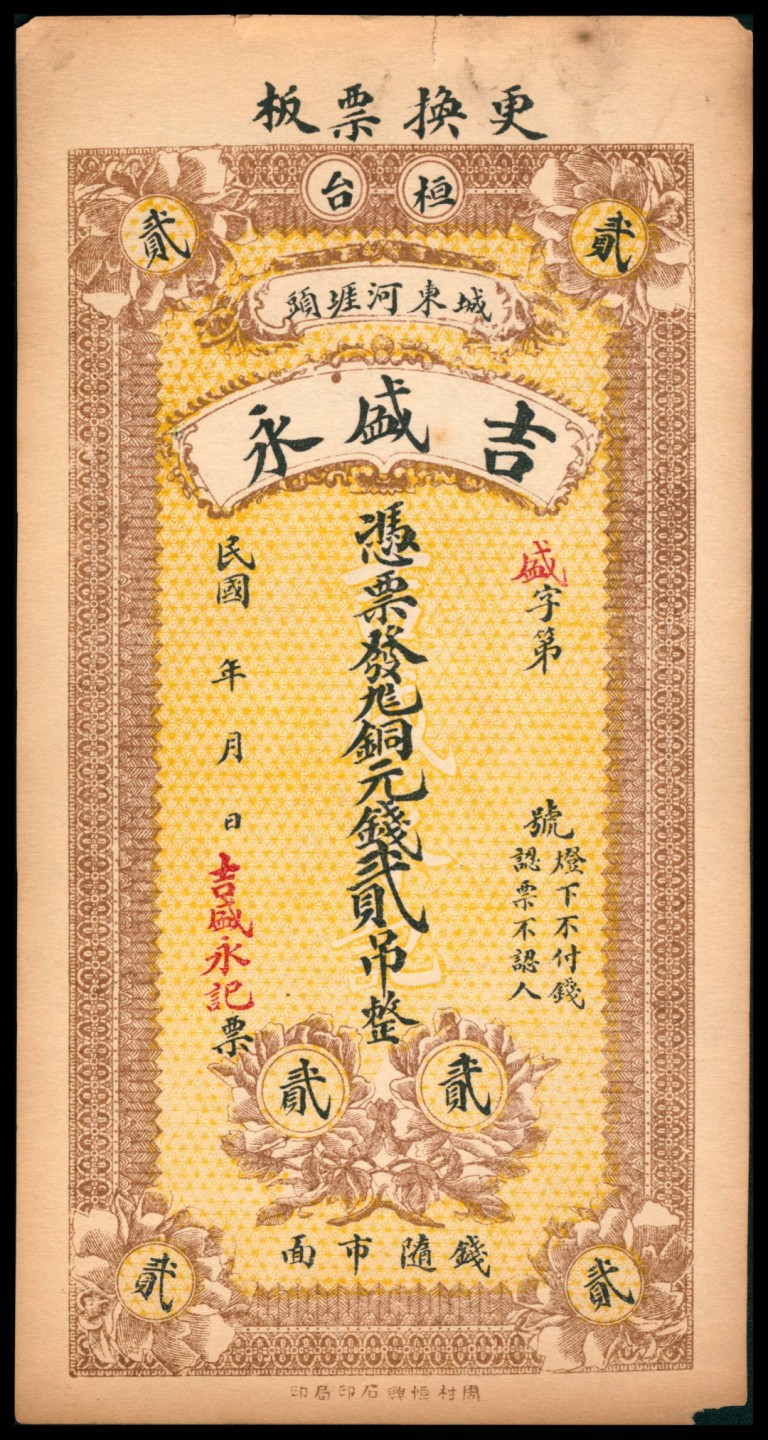 更換票板
桓台
貳
貳
城東河涯頭
吉盛永
盛字第 號
燈下不付錢
認票不認人
憑票發兌銅元錢貳吊整
民國 年 月 日 吉盛永記票
吉盛永記
貳
貳
錢隨市面
貳
貳
周村恒興石印局印